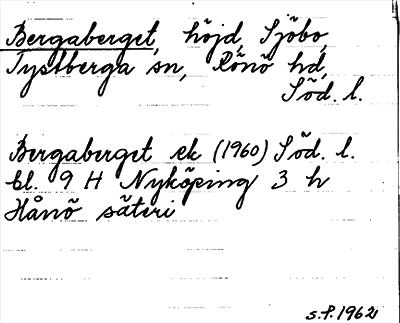 Bergaberget, höjd, Sjöbo,
Tystberga sn, Rönö hd,
Söd. l.
Bergaberget ek (1960) Söd. l.
bl. 9 H Nyköping 3 h
Hånö säteri
S.P. 1962